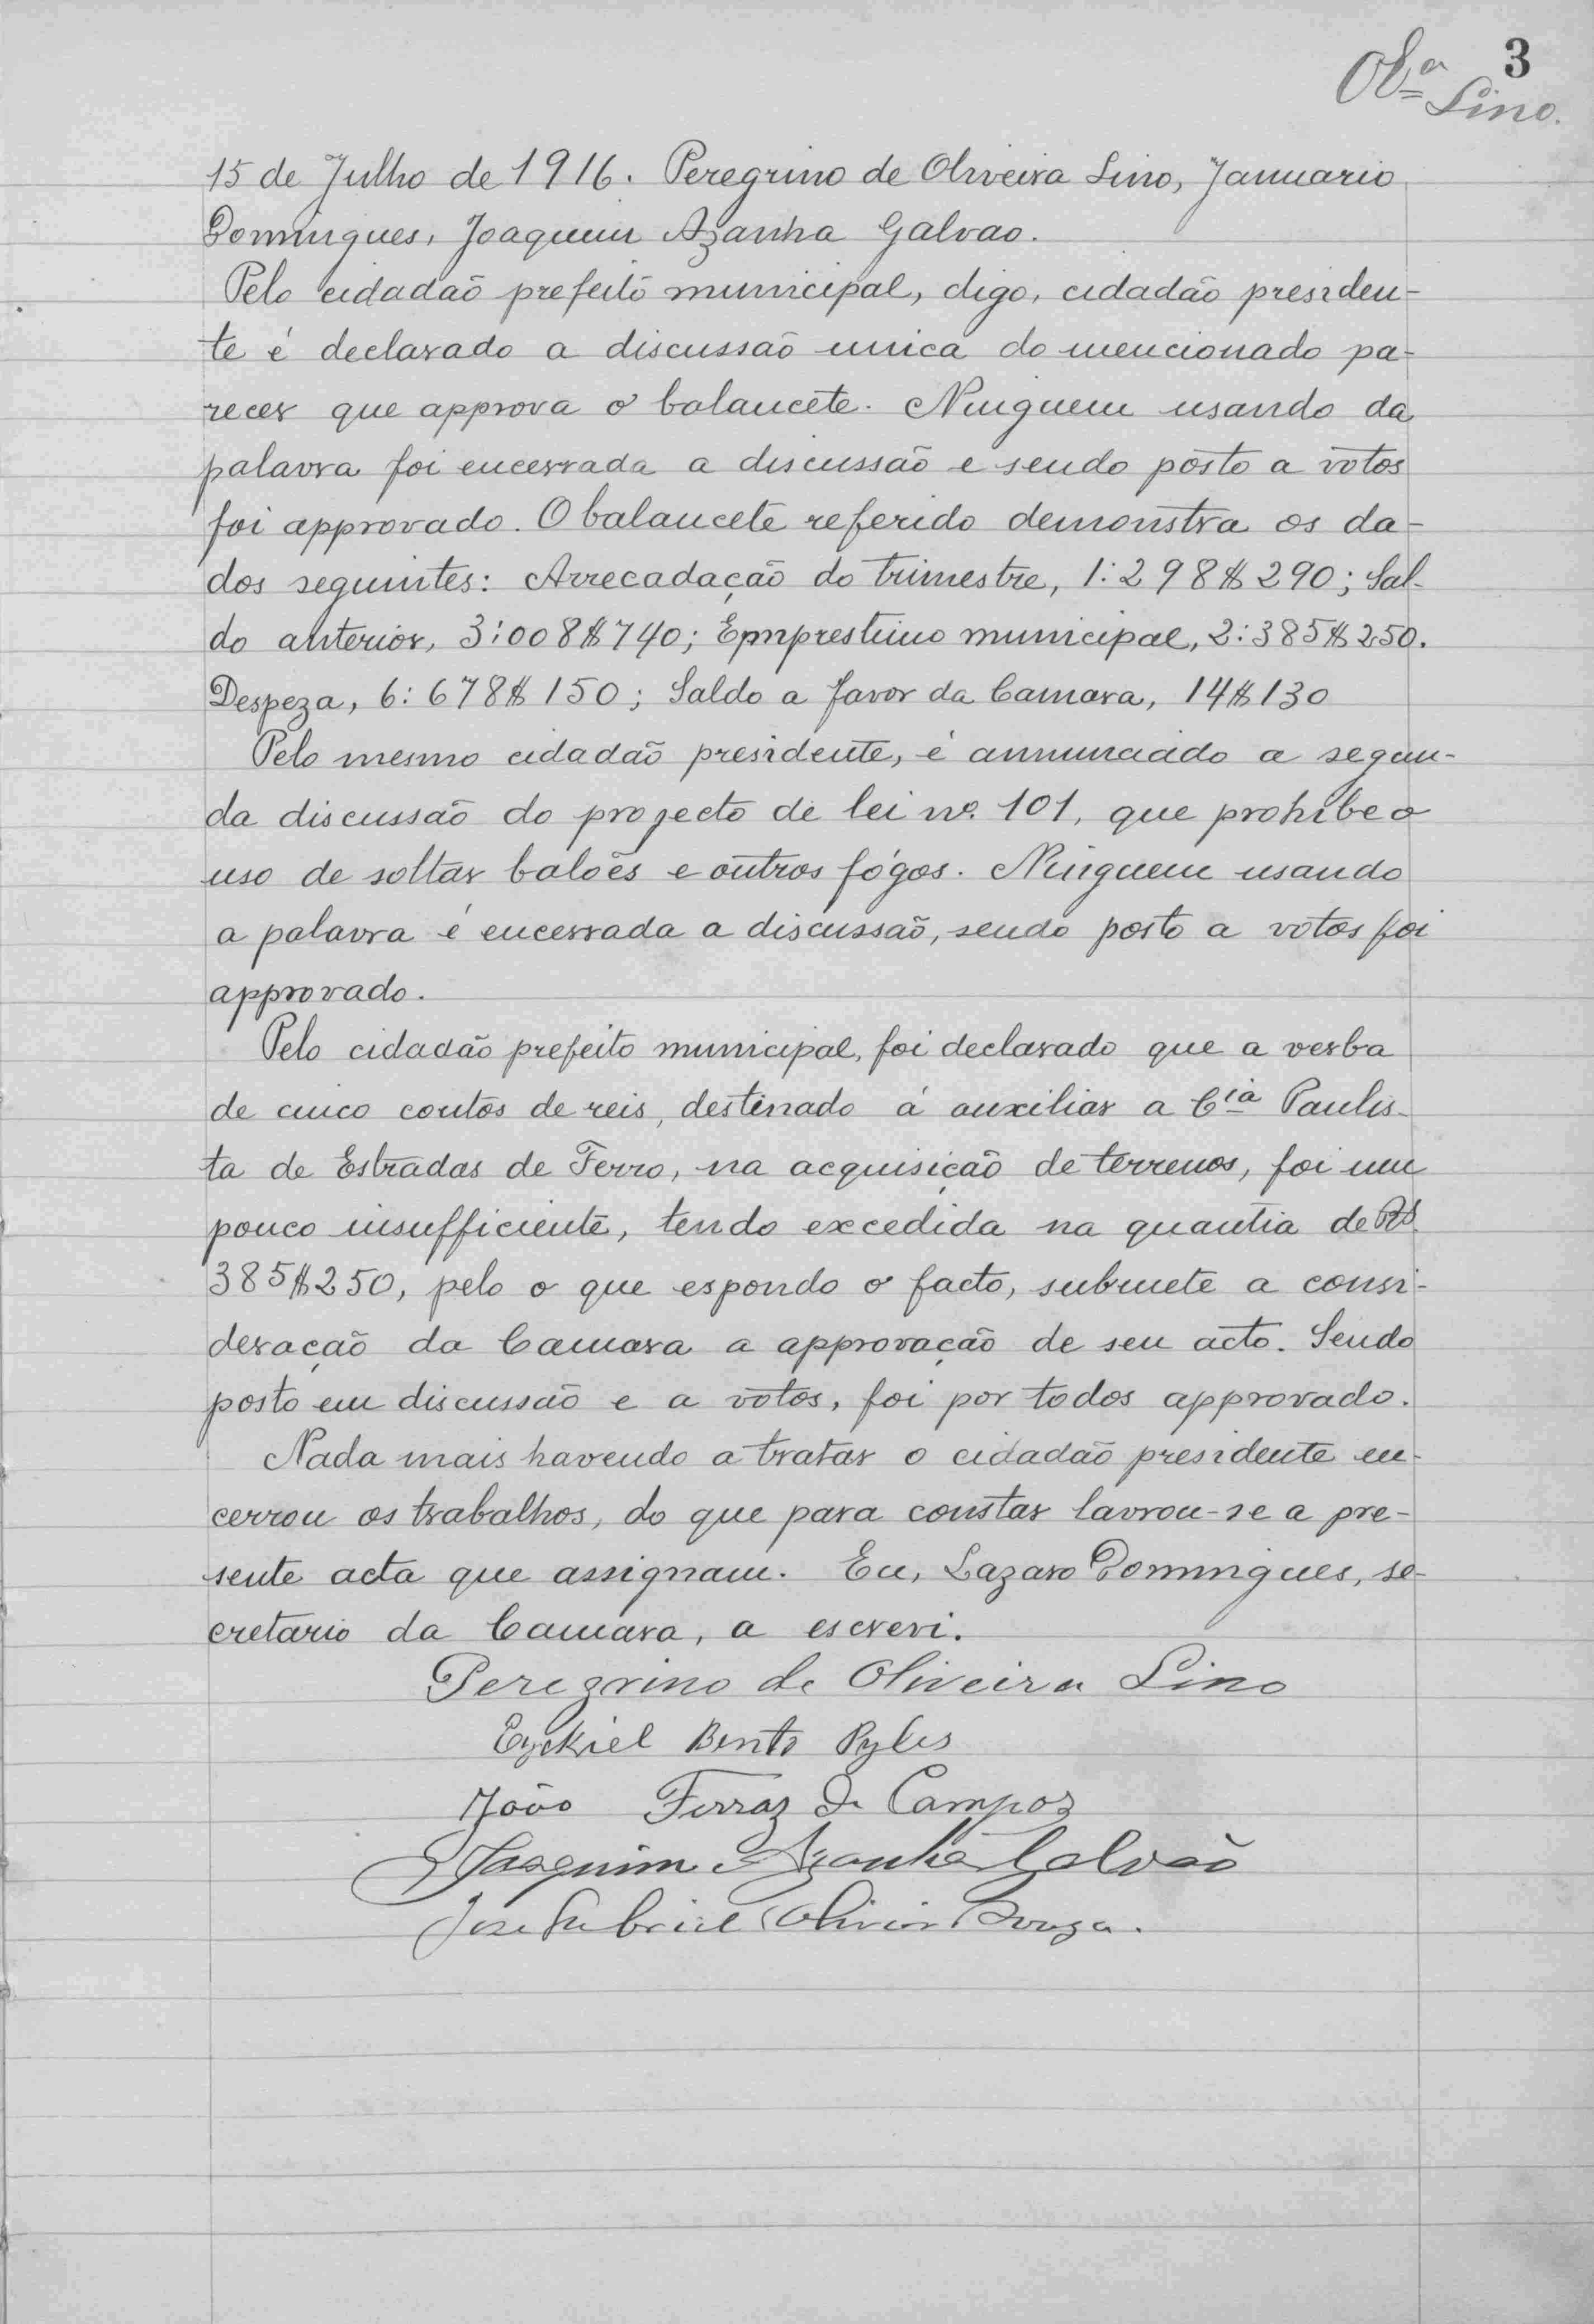 3
Olª Lino.
15 de Julho de 1916. Peregrino de Oliveira Lino, Januario
Domingues, Joaquim Azanha Galvao.
Pelo cidadão prefeito municipal, digo, cidadão presiden-
te é declarado a discussão unica do mencionado pa-
recer que approva o balancete. Ninguem usando da
palavra foi encerrada a discussão e sendo posto a votos
foi approvado. O balancete referido demonstra os da-
dos seguintes: Arrecadação do trimestre, 1:298$290; Sal-
do anterior, 3:008$740; Emprestimo municipal, 2:385$250.
Despeza, 6:678$150; Saldo a favor da Camara, 14$130
Pelo mesmo cidadão presidente, é annunciado a segun-
da discussão do projecto de lei nº. 101, que prohibe o
uso de soltar balões e outros fógos. Ninguem usando
a palavra é encerrada a discussão, sendo posto a votos foi
approvado.
Pelo cidadão prefeito municipal, foi declarado que a verba
de cinco contos de reis, destinado á auxiliar a Cia Paulis-
ta de Estradas de Ferro, na acquisição de terrenos, foi um
pouco insufficiente, tendo excedida na quantia de Rs
385$250, pelo o que espondo o facto, submete a consi-
deração da Camara a approvação de seu acto. Sendo
posto em discussão e a votos, foi por todos approvado.
Nada mais havendo a tratar o cidadão presidente en-
cerrou os trabalhos, do que para constar lavrou-se a pre-
sente acta que assignam. Eu, Lazaro Domingues, se-
cretario da Camara, a escrevi.
Peregrino de Oliveira Lino
Ezekiel Bento Pyles
João Ferraz de Campos
Joaquim Azanha Galvão
José Gabriel Oliveira Souza.